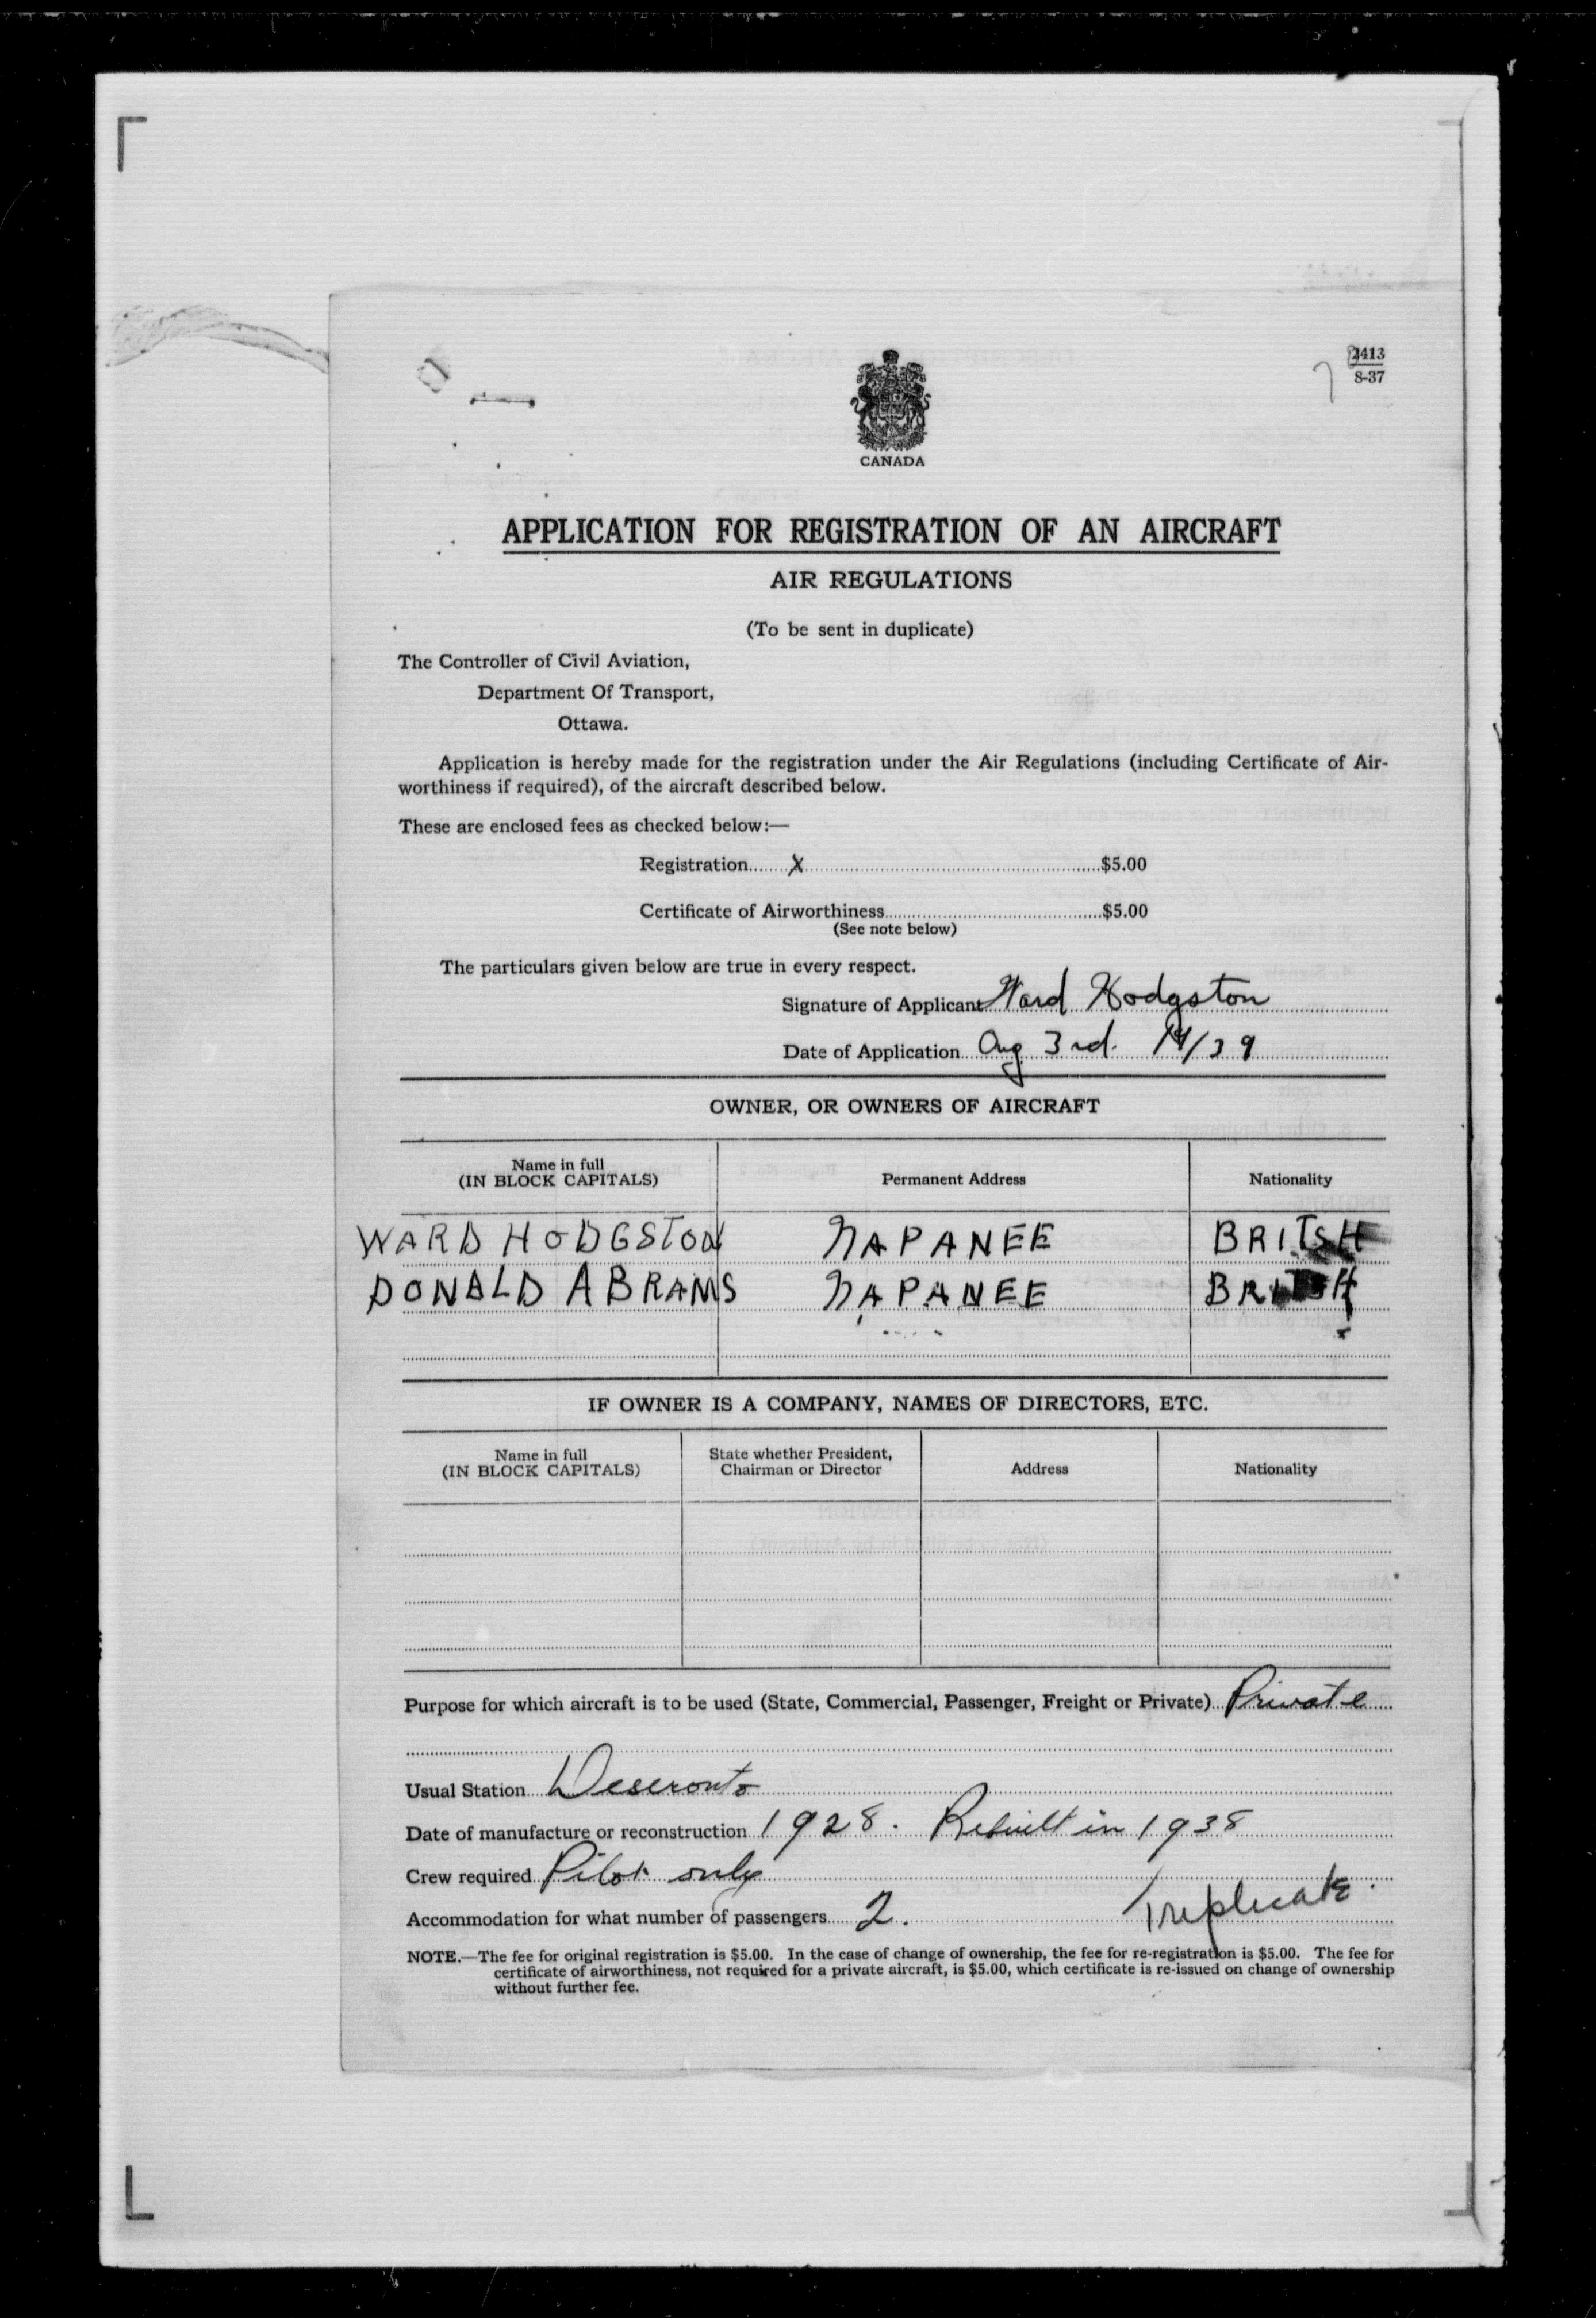 2413
8-37
CANADA
APPLICATION FOR REGISTRATION OF AN AIRCRAFT
AIR REGULATIONS
(To be sent in duplicate)
The Controller of Civil Aviation,
Department Of Transport,
Ottawa.
Application is hereby made for the registration under the Air Regulations (including Certificate of Air-
worthiness if required), of the aircraft described below.
These are enclosed fees as checked below:—
Registration X $5.00
Certificate of Airworthiness $5.00
(See note below)
The particulars given below are true in every respect.
Signature of Applicant Ward Hodgston
Date of Application Aug 3rd. 19/39
OWNER, OR OWNERS OF AIRCRAFT
Name in full
(IN BLOCK CAPITALS) Permanent Address Nationality
WARD HODGSTON NAPANEE BRITSH
DONALD ABRAMS NAPANEE BRITSH
IF OWNER IS A COMPANY, NAMES OF DIRECTORS, ETC.
Name in full State whether President,
(IN BLOCK CAPITALS) Chairman or Director Address Nationality
Purpose for which aircraft is to be used (State, Commercial, Passenger, Freight or Private) Private
Usual Station Deseronto
Date of manufacture or reconstruction 1928. Rebuilt in 1938
Crew required Pilot only
Accommodation for what number of passengers 2. Triplicate.
NOTE.—The fee for original registration is $5.00. In the case of change of ownership, the fee for re-registration is $5.00. The fee for
certificate of airworthiness, not required for a private aircraft, is $5.00, which certificate is re-issued on change of ownership
without further fee.